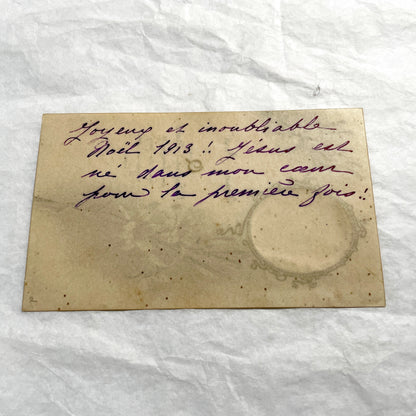 Joyeux et inoubliable
Noël 1913!! Jésus est
né dans mon cœur
pour la première fois!!